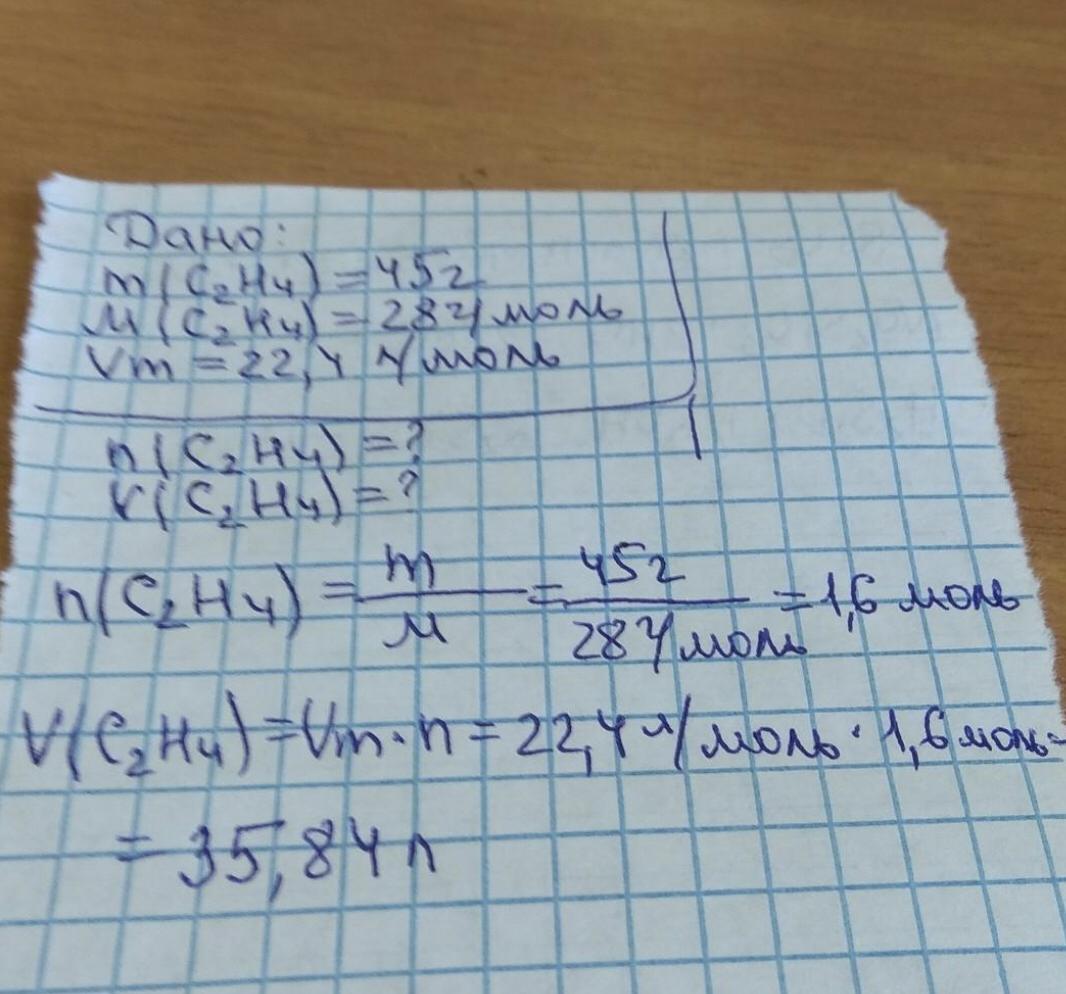 Дано:
m(C₂H₄) = 45г
M(C₂H₄) = 28г/моль
Vm = 22,4 л/моль
n(C₂H₄) = ?
V(C₂H₄) = ?
n(C₂H₄) = m/M = 45г/28г/моль = 1,6 моль
V(C₂H₄) = Vm · n = 22,4 л/моль · 1,6 моль =
= 35,84 л